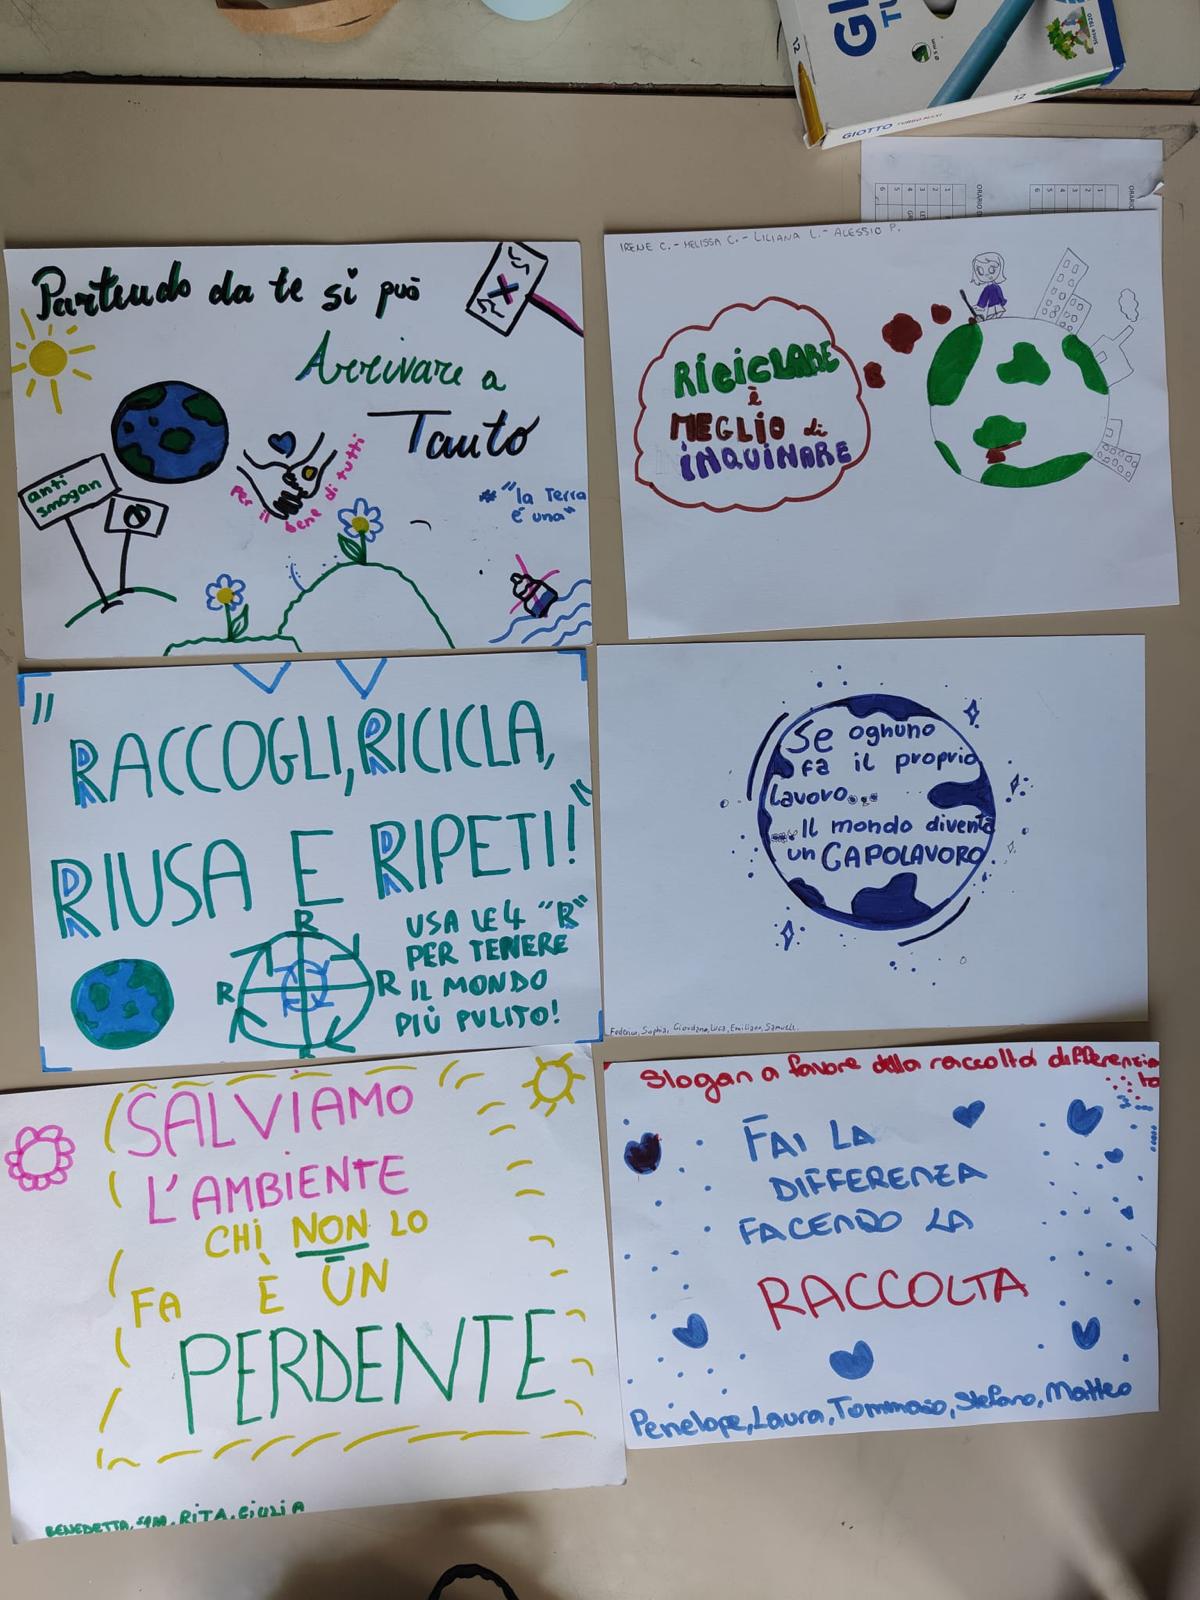 GIOTTO TURBO MAXI
12
12
Since 1920
ORARIO
Partendo da te si può
Arrivare a
Tanto
anti
smogan
per il bene di tutti
#"la Terra
è una"
IRENE C.- MELISSA C.- LILIANA L.- ALESSIO P.
RICICLARE
è
MEGLIO di
INQUINARE
"RACCOGLI, RICICLA,
RIUSA E RIPETI!"
USA LE 4 "R"
PER TENERE
IL MONDO
PIÙ PULITO!
R
R
R
R
Se ognuno
fa il proprio
lavoro...
...Il mondo diventa
un CAPOLAVORO
Federico, Sophia, Giordana, Luca, Emiliano, Samuele.
SALVIAMO
L'AMBIENTE
CHI NON LO
FA È UN
PERDENTE
BENEDETTA, RITA, GIULIA
Slogan a favore della raccolta differenzia
ta
FAI LA
DIFFERENZA
FACENDO LA
RACCOLTA
Penelope, Laura, Tommaso, Stefano, Matteo